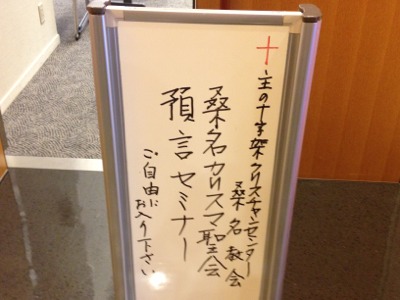 十主の十字架クリスチャンセンター
桑名教会
桑名カリスマ聖会
預言セミナー
ご自由に
お入り下さい